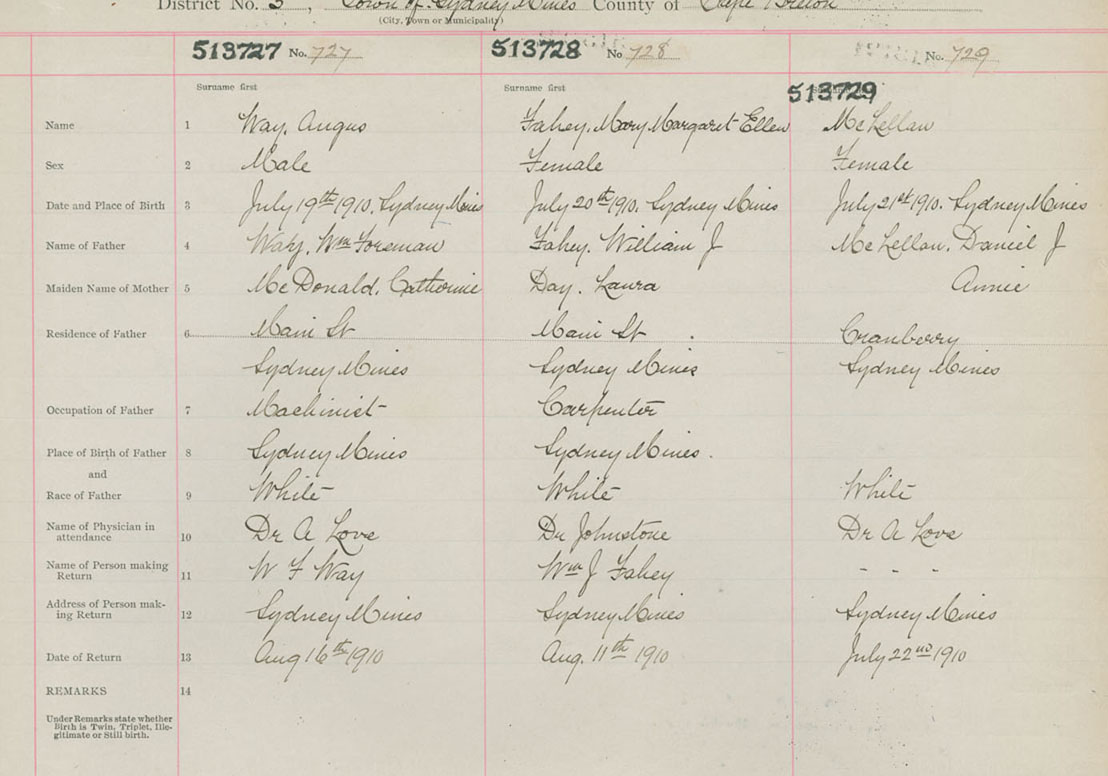 District No. 3, Town of Sydney Mines County of Cape Breton
(City, Town or Municipality)
513727 No. 727 513728 No 728 No. 729
513729
Surname first Surname first
Name 1 Way, Angus Fahey, Mary Margaret Ellen McLellan
Sex 2 Male Female Female
Date and Place of Birth 3 July 19th 1910, Sydney Mines July 20th 1910, Sydney Mines July 21st 1910, Sydney Mines
Name of Father 4 Way, Wm Foreman Fahey, William J McLellan, Daniel J
Maiden Name of Mother 5 McDonald, Catherine Day, Laura Annie
Residence of Father 6 Main St Main St Cranberry
Sydney Mines Sydney Mines Sydney Mines
Occupation of Father 7 Machinist Carpenter
Place of Birth of Father 8 Sydney Mines Sydney Mines.
and
Race of Father 9 White White White
Name of Physician in
attendance 10 Dr A Love Dr Johnstone Dr A Love
Name of Person making
Return 11 W F Way Wm J Fahey - - -
Address of Person mak-
ing Return 12 Sydney Mines Sydney Mines Sydney Mines
Date of Return 13 Aug 16th 1910 Aug. 11th 1910 July 22nd 1910
REMARKS 14
Under Remarks state whether
Birth is Twin, Triplet, Ille-
gitimate or Still birth.